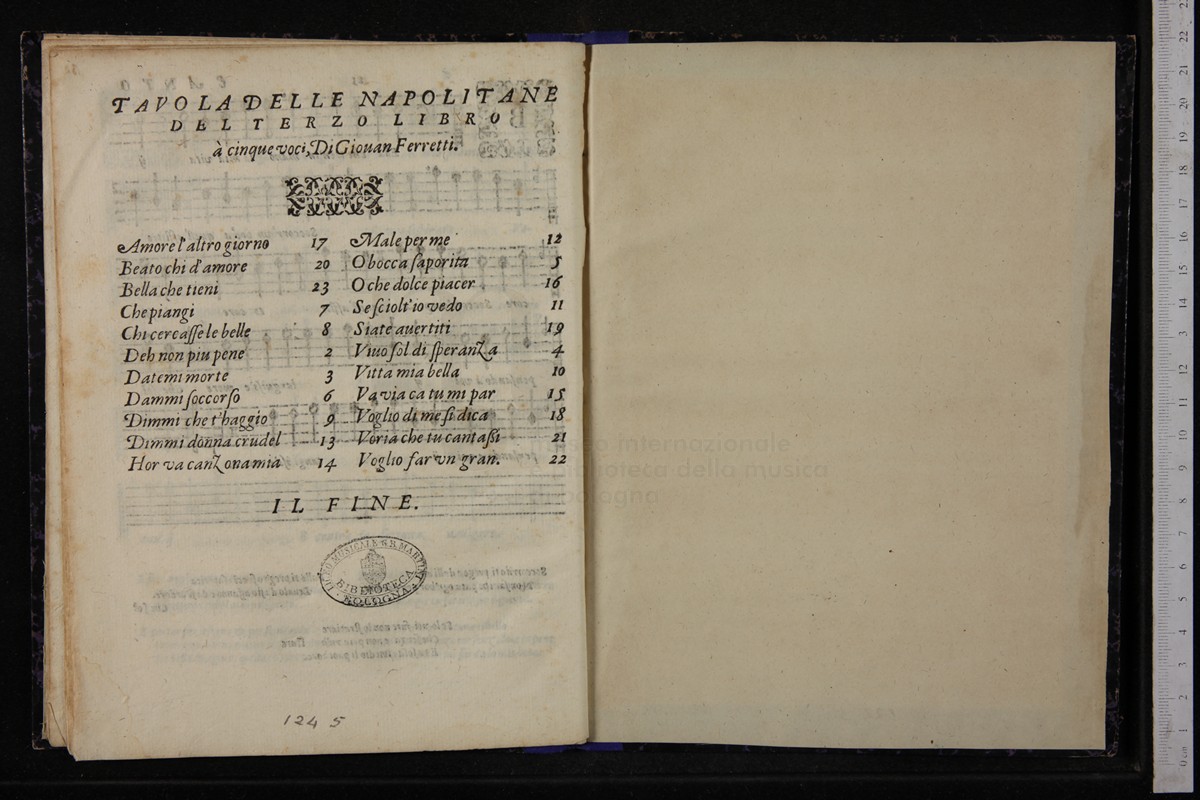 TAVOLA DELLE NAPOLITANE
DEL TERZO LIBRO
à cinque voci, Di Giouan Ferretti.
Amore l'altro giorno 17
Beato chi d'amore 20
Bella che tieni 23
Che piangi 7
Chi cercasse le belle 8
Deh non piu pene 2
Datemi morte 3
Dammi soccorso 6
Dimmi che t'haggio 9
Dimmi donna crudel 13
Hor va canzona mia 14
Male per me 12
O bocca saporita 5
O che dolce piacer 16
Se sciolt'io vedo 11
Siate auertiti 19
Viuo sol di speranza 4
Vitta mia bella 10
Va via ca tu mi par 15
Voglio di me si dica 18
Voria che tu cantassi 21
Voglio far vn gran. 22
IL FINE.
LICEO MUSICALE G.B. MARTINI
BIBLIOTECA
BOLOGNA
1245
museo internazionale
e biblioteca della musica
di bologna